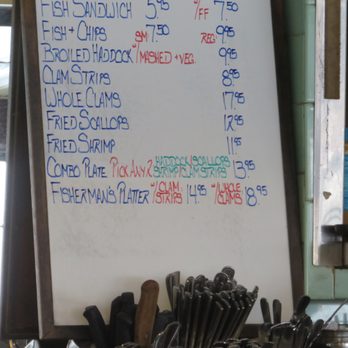 FISH SANDWICH 5.95 W/FF 7.50
FISH + CHIPS SM. 7.50 REG. 9.95
BROILED HADDOCK W/MASHED + VEG. 9.95
CLAM STRIPS 8.95
WHOLE CLAMS 17.95
FRIED SCALLOPS 12.95
FRIED SHRIMP 11.95
COMBO PLATE PICK ANY 2 HADDOCK/SCALLOPS 13.95
SHRIMP/CLAM STRIPS
FISHERMAN'S PLATTER W/CLAM STRIPS 14.95 W/WHOLE CLAMS 18.95